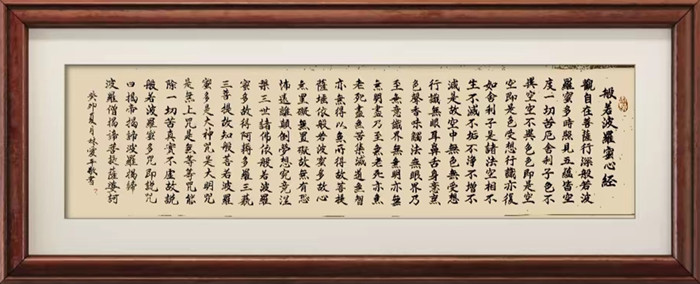 般若波羅蜜心經
觀自在菩薩行深般若波
羅蜜多時照見五蘊皆空
度一切苦厄舍利子色不
異空空不異色色即是空
空即是色受想行識亦復
如舍利子是諸法空相不
生不滅不垢不淨不增不
減是故空中無色無受想
行識無眼耳鼻舌身意無
色聲香味觸法無眼界乃
至無意識界無無明亦無
無明盡乃至無老死亦無
老死盡無苦集滅道無智
亦無得以無所得故菩提
薩埵依般若波蜜多故心
無罣礙無罣礙故無有恐
怖遠離顛倒夢想究竟涅
槃三世諸佛依般若波羅
蜜多故得阿耨多羅三藐
三菩提故知般若波羅
蜜多是大神咒是大明咒
是無上咒是無等等咒能
除一切苦真實不虛故說
般若波羅蜜多咒即說咒
曰揭帝揭諦波羅揭諦
波羅僧揭諦菩提薩婆訶
癸卯夏月林愛平敬書